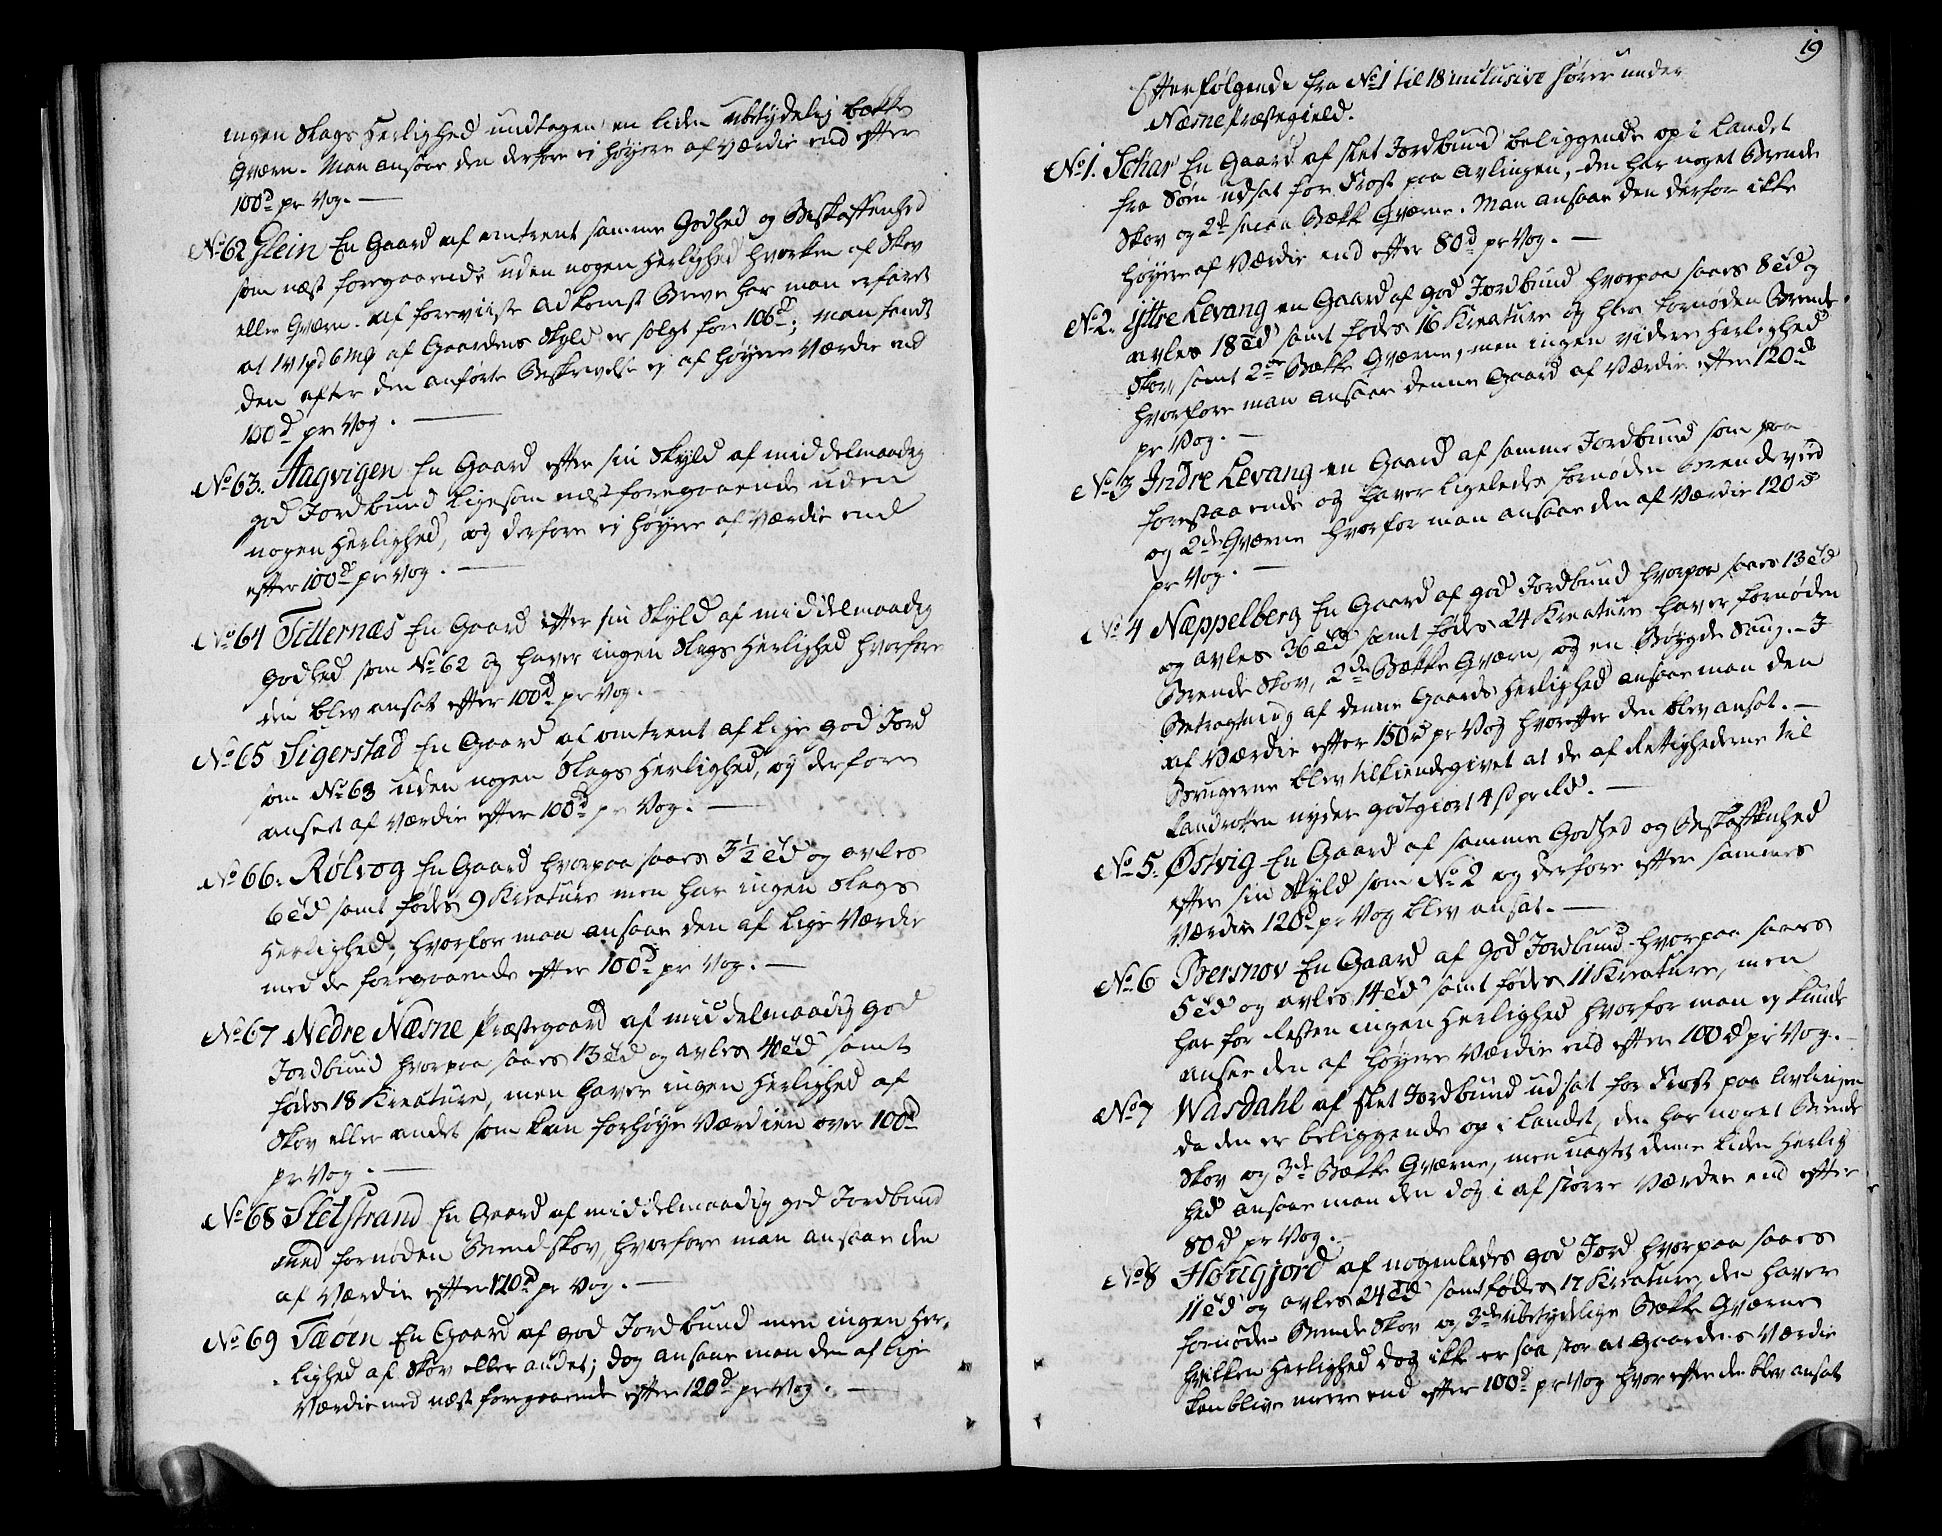 ingen Slags Herlighed undtagen en liden ubetydelig bekke
Qværn. Man ansaae den derfore ei høyere af Værdie end efter
100d pr Vog. —
No 62 Glein En Gaard af omtrent samme Godhed og Beskaffenhed
som næst foregaaende uden nogen Herlighed hvorken af Skov
eller Qværn. Af foreviiste Adkomst Breve har man erfaret
at 1V 1pd 6mp af Gaardens Skyld er solgt for 106d; Man fandt
den efter den anførte Beskrivelse ei af høyere Værdie end
100d pr Vog. —
No 63. Hagvigen En Gaard efter sin Skyld af middelmaadig
god Jordbund ligesom næstforegaaende uden
nogen Herlighed, og derfore ei høyere af Værdie end
efter 100d pr Vog. —
No 64 Titternæs En Gaard efter sin Skyld af middelmaadig
Godhed som No 62 og haver ingen Slags Herlighed hvorfore
den blev ansat efter 100d pr Vog.
No 65 Sigerstad En Gaard af omtrent af lige god Jord
som No 63 uden nogen Slags Herlighed, og derfore
anseet af Værdie efter 100d pr Vog. —
No 66. Rølvog En Gaard hvorpaa saaes 3½ Td og avles
6 Td samt fødes 9 Kreature men har ingen Slags
Herlighed, hvorfor man ansaae den af lige Værdie
med de foregaaende efter 100d pr Vog. —
No 67 Nedre Næsne Præstegaard af middelmaadig god
Jordbund hvorpaa saaes 13 Td og avles 40 Td samt
fødes 18 Kreature, men haver ingen Herlighed af
Skov eller andet som kan forhøye Værdien over 100d
pr Vog. —
No 68 Sletstrand En Gaard af middelmaadig god Jordbund
med fornøden Brendskov, hvorfore man ansaae den
af Værdie efter 120d pr Vog. —
No 69 Taøen En Gaard af god Jordbund men ingen Her-
lighed af Skov eller andet; dog ansaae man den af lige
Værdie med næst foregaaende efter 120d pr Vog. —
19
Efterfølgende fra No 1 til 18 inclusive hører under
Næsne Præstegield.
No 1. Schar En Gaard af slet Jordbund beliggende op i Landet
fra Søen udsat for Frost paa Avlingen, den har noget Brende
Skov og 2de smaa Bække Qværne. Man ansaae den derfor ikke
høyere af Værdie end efter 80d pr Vog. —
No 2. Yttre Levang en Gaard af god Jordbund hvorpaa saaes 8 Td og
avles 18 Td samt fødes 16 Kreature og har fornøden Brende
Skov, samt 2de Bække Qværne, men ingen videre Herlighed
hvorfore man ansaae denne Gaard af Værdie efter 120d
pr Vog. —
No 3 Indre Levang en Gaard af samme Jordbund som paa
forestaaende og haver ligeledes fornøden Brendeved
og 2de Qværne hvorfor man ansaae den af Værdie 120d
pr Vog. —
No 4 Næppelberg En Gaard af god Jordbund hvorpaa saaes 13 Td
og avles 36 Td samt fødes 24 Kreature haver fornøden
Brende Skov, 2de Bække Qværn, og en Bøygde Saug. – I
Betragtning af denne Gaards Herlighed ansaae man den
af Værdie efter 150d pr Vog hvorefter den blev ansat. —
Brugerne blev tilkiendegivet at de af Rettighederne til
Landrotten nyder godtgiort 4 ß pr rd. —
No 5. Østvig En Gaard af samme Godhed og Beskaffenhed
efter sin Skyld som No 2 og derfore efter sammes
Værdie 120d pr Vog blev ansat. —
No 6 Bersnov En Gaard af god Jordbund hvorpaa saaes
5 Td og avles 14 Td samt fødes 11 Kreature, men
har for Resten ingen Herlighed hvorfor man ey kunde
ansee den af høyere Værdie end efter 100d pr Vog. —
No 7 Wasdahl af slet Jordbund udsat for Frost paa Avlingen
da den er beliggende op i Landet, den har noget Brende
Skov og 3de Bække Qværne, men uagtet denne liden Herlig
hed ansaae man den dog i af større Værdie end efter
80d pr Vog. —
No 8 Hougjord af nogenledes god Jord hvorpaa saaes
11 Td og avles 24 Td samt fødes 17 Kreature, den haver
fornøden Brende Skov og 3de ubetydelige Bække Qværne
hvilken Herlighed dog ikke er saa stor at Gaardens Værdie
kan blive meere end efter 100d pr Vog hvorefter den blev ansat